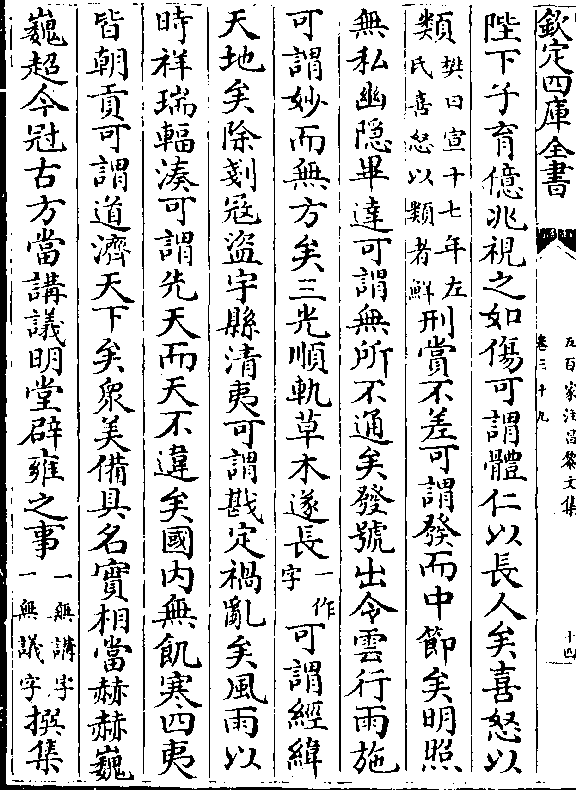 欽定四庫全書
五百家注昌黎文集
卷三十九
十四
陛下子育億兆視之如傷可謂體仁以長人矣喜怒以
類樊曰宣十七年左氏喜怒以類者鮮刑賞不差可謂發而中節矣明照
無私幽隱畢達可謂無所不通矣發號出令雲行雨施
可謂妙而無方矣三光順軌草木遂長一作字可謂經緯
天地矣除剗冦盜宇縣清夷可謂戡定禍亂矣風雨以
時祥瑞輻湊可謂先天而天不違矣國内無飢寒四夷
皆朝貢可謂道濟天下矣衆美備具名實相當赫赫巍
巍超今冠古方當講議明堂辟雍之事一無講字一無議字撰集